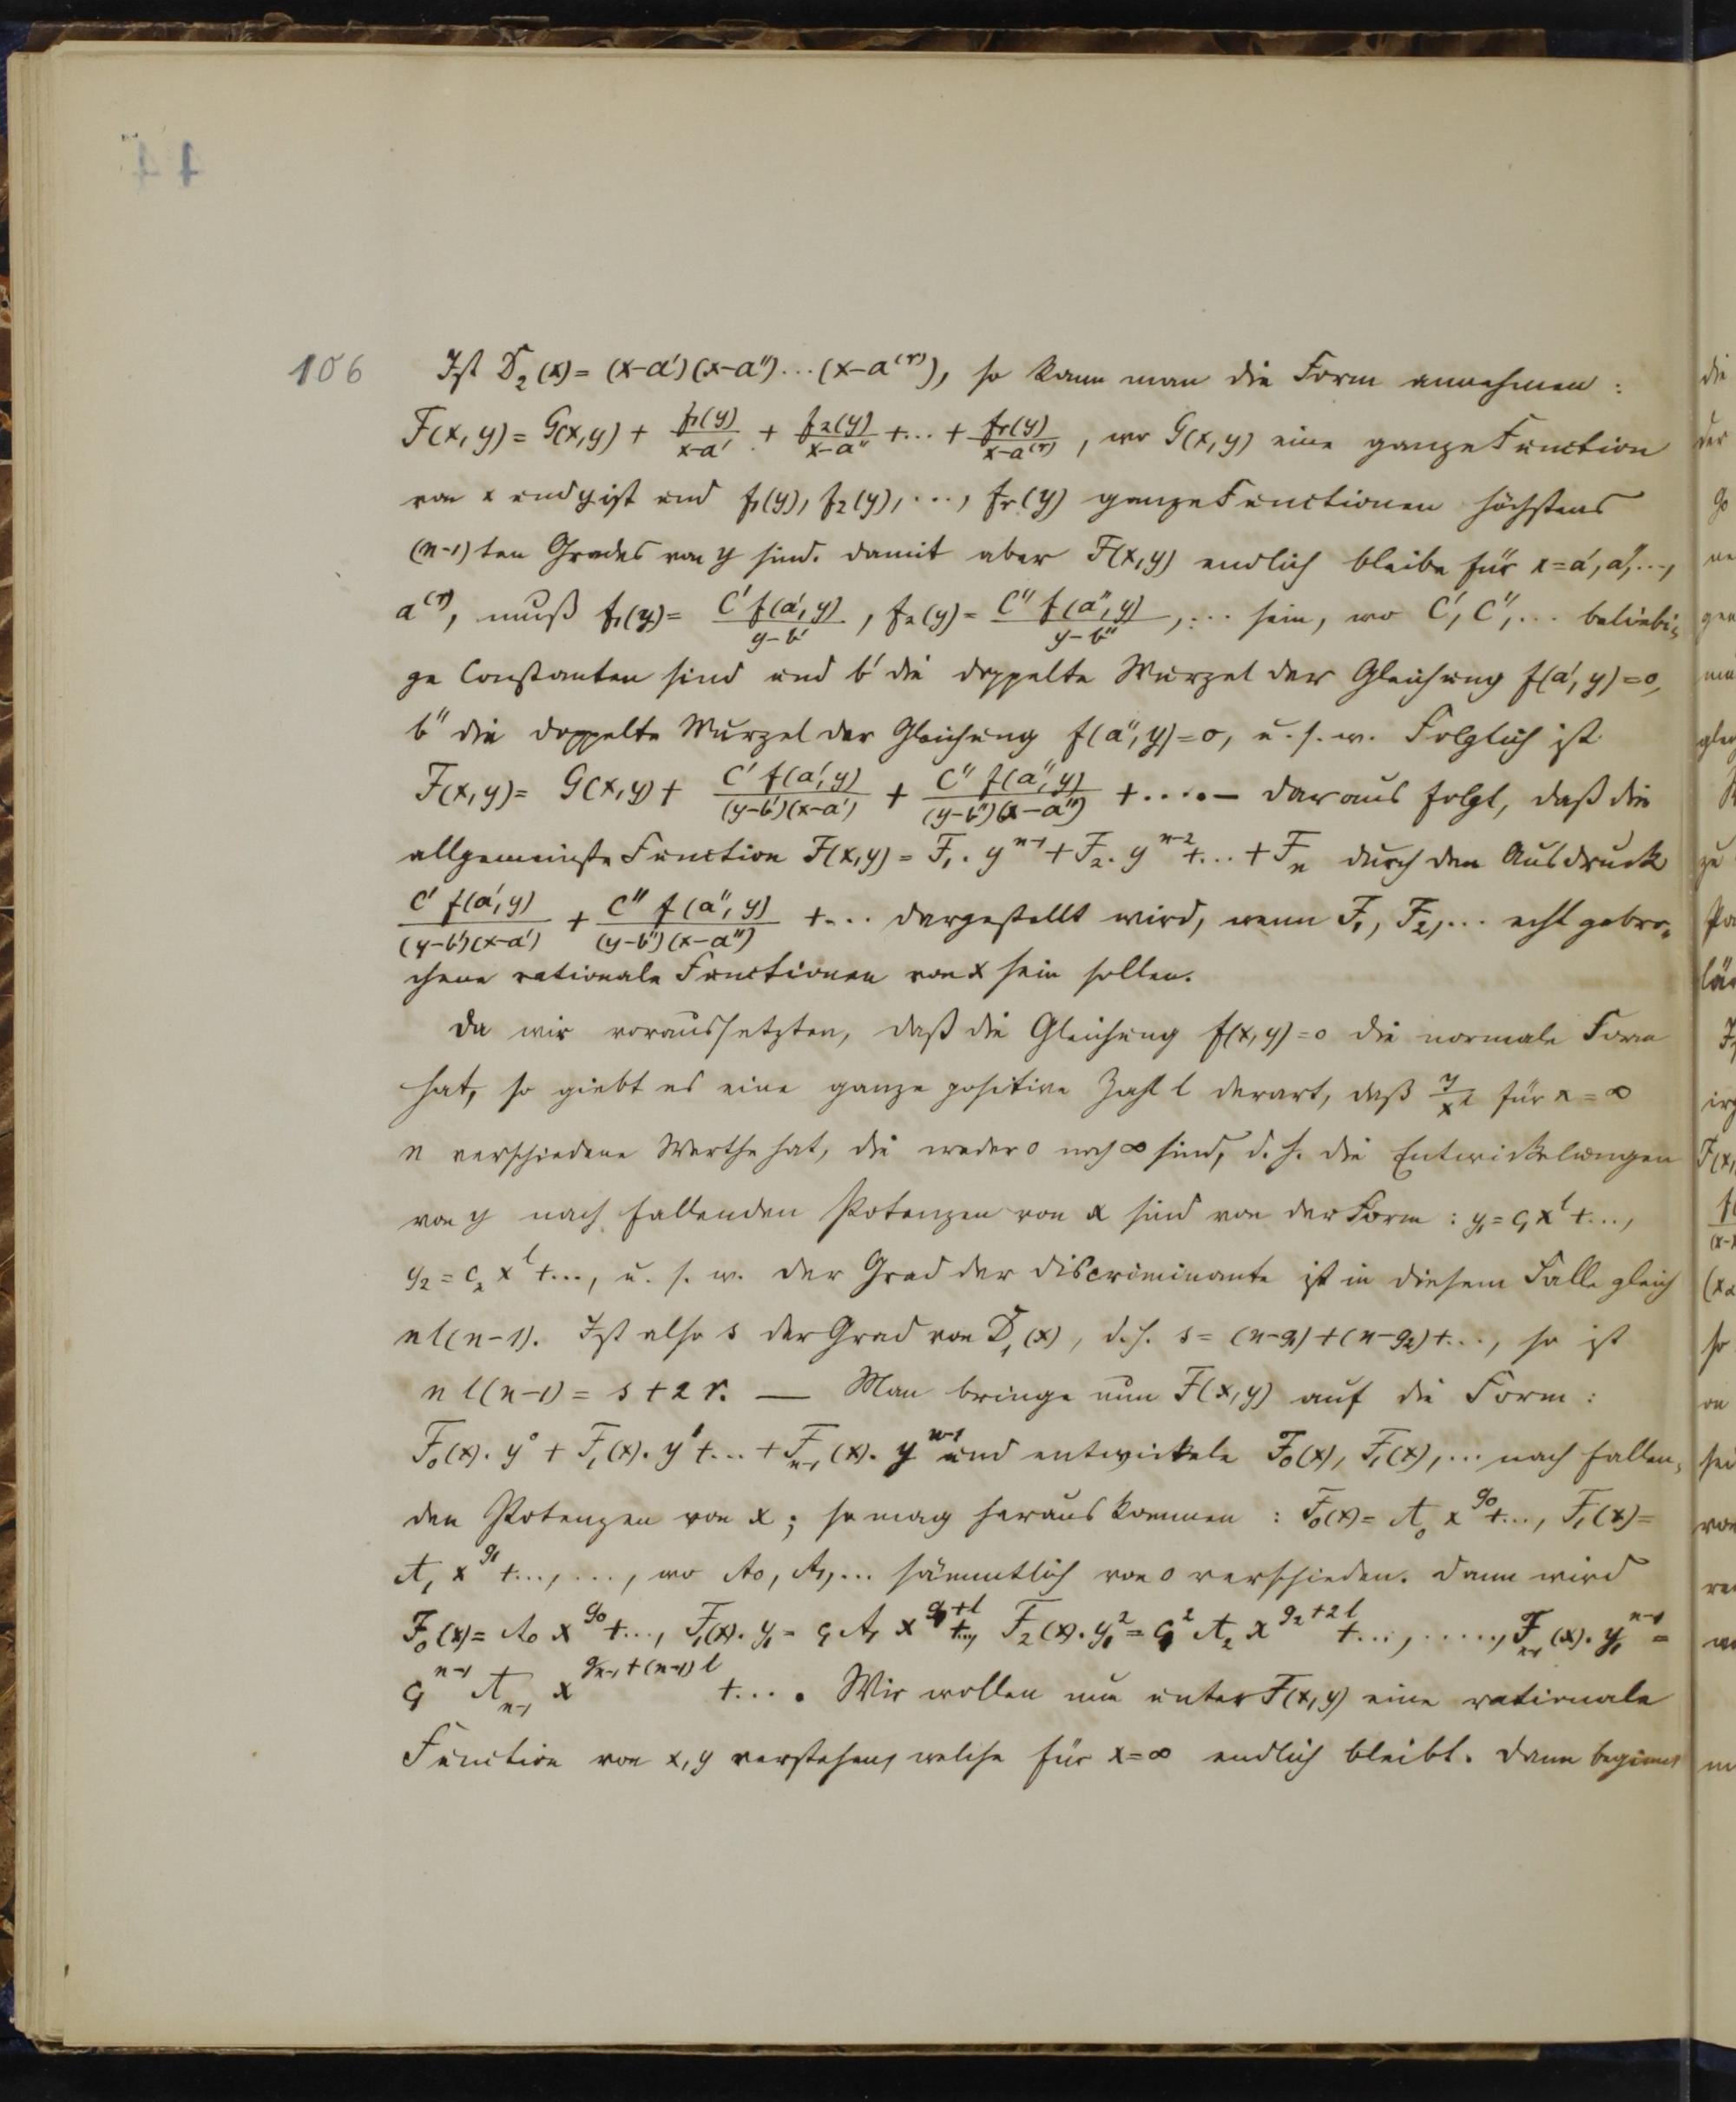 106
Ist D₂(x) = (x-a′)(x-a″)...(x-a⁽ʳ⁾), so kann man die Form annehmen:
F(x,y) = G(x,y) + f₁(y)/(x-a′) + f₂(y)/(x-a″) + ... + fᵣ(y)/(x-a⁽ʳ⁾), wo G(x,y) eine ganze Function
von x und y ist und f₁(y), f₂(y), ..., fᵣ(y) ganze Functionen höchstens
(n-1)ten Grades von y sind. Damit aber F(x,y) endlich bleibe für x = a′, a″, ...,
a⁽ʳ⁾, muß f₁(y) = C′f(a′,y)/(y-b′), f₂(y) = C″f(a″,y)/(y-b″), ... sein, wo C′, C″, ... beliebi-
ge Constanten sind und b′ die doppelte Wurzel der Gleichung f(a′,y)=0,
b″ die doppelte Wurzel der Gleichung f(a″,y)=0, u. s. w. Folglich ist
F(x,y) = G(x,y) + C′f(a′,y)/((y-b′)(x-a′)) + C″f(a″,y)/((y-b″)(x-a″)) + .... — Daraus folgt, daß die
allgemeinste Function F(x,y) = F₁·yⁿ⁻¹ + F₂·yⁿ⁻² + ... + Fₙ durch den Ausdruck
C′f(a′,y)/((y-b′)(x-a′)) + C″f(a″,y)/((y-b″)(x-a″)) + ... dargestellt wird, wenn F₁, F₂, ... echt gebro-
chene rationale Functionen von x sein sollen.
Da wir voraussetzten, daß die Gleichung f(x,y)=0 die normale Form
hat, so giebt es eine ganze positive Zahl l derart, daß y/xˡ für x=∞
n verschiedene Werthe hat, die weder 0 noch ∞ sind, d. h. die Entwickelungen
von y nach fallenden Potenzen von x sind von der Form: y₁ = c₁xˡ + ...,
y₂ = c₂xˡ + ..., u. s. w. Der Grad der Discriminante ist in diesem Falle gleich
nl(n-1). Ist also s der Grad von D₁(x), d. h. s = (n-g₁)+(n-g₂)+..., so ist
nl(n-1) = s+2r. — Man bringe nun F(x,y) auf die Form:
F₀(x)·y⁰ + F₁(x)·y¹ + ... + Fₙ₋₁(x)·yⁿ⁻¹ und entwickele F₀(x), F₁(x), ... nach fallen-
den Potenzen von x; so mag heraus kommen: F₀(x) = A₀x^g₀ + ..., F₁(x) =
A₁x^g₁ + ..., ..., wo A₀, A₁, ... sämmtlich von 0 verschieden. Dann wird
F₀(x) = A₀x^g₀ + ..., F₁(x)·y₁ = c₁A₁x^(g₁+l) + ..., F₂(x)·y₁² = c₁²A₂x^(g₂+2l) + ..., ....., Fₙ₋₁(x)·y₁ⁿ⁻¹ =
c₁ⁿ⁻¹Aₙ₋₁x^(gₙ₋₁+(n-1)l) + .... Wir wollen nun unter F(x,y) eine rationale
Function von x, y verstehen, welche für x=∞ endlich bleibt. Dann beginnt